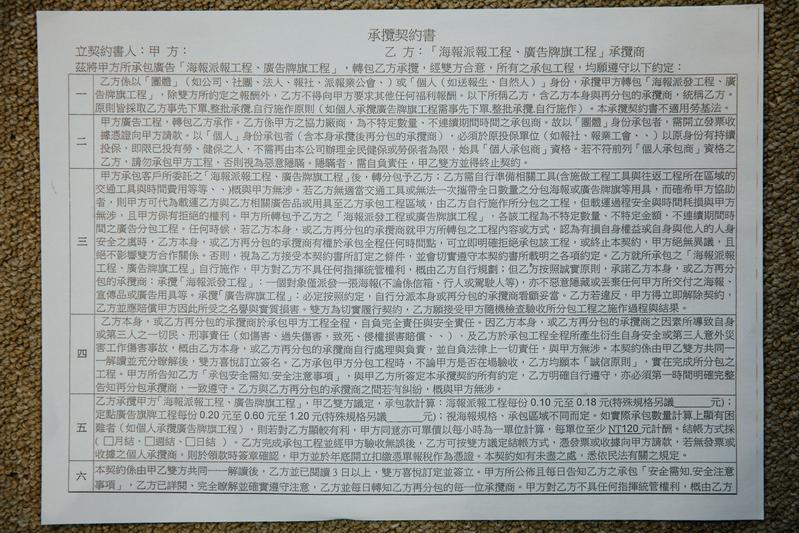 承攬契約書
立契約書人：甲 方： 乙 方：「海報派報工程、廣告牌旗工程」承攬商
茲將甲方所承包廣告「海報派報工程、廣告牌旗工程」，轉包乙方承攬，經雙方合意，所有之承包工程，均願遵守以下約定：
一
乙方係以「團體」（如公司、社團、法人、報社、派報業公會、、）或「個人（如送報生、自然人）」身份，承攬甲方轉包「海報派發工程、廣
告牌旗工程」，除雙方所約定之報酬外，乙方不得向甲方要求其他任何福利報酬。以下所稱乙方，含乙方本身與再分包的承攬商，統稱乙方。
原則皆採取乙方事先下單.整批承攬.自行施作原則（如個人承攬廣告牌旗工程需事先下單.整批承攬.自行施作）。本承攬契約書不適用勞基法。
二
甲方廣告工程，轉包乙方承作。乙方係甲方之協力廠商，為不特定數量、不連續期間時間之承包商。故以「團體」身份承包者，需開立發票收
據憑證向甲方請款。以「個人」身份承包者（含本身承攬後再分包的承攬商），必須於原投保單位（如報社、報業工會、、）以原身份有持續
投保，即限已投有勞、健保之人，不需再由本公司辦理全民健保或勞保者為限，始具「個人承包商」資格。若不符前列「個人承包商」資格之
乙方、請勿承包甲方工程、否則視為惡意隱瞞。隱瞞者，需自負責任，甲乙雙方並得終止契約。
三
甲方承包客戶所委託之「海報派報工程、廣告牌旗工程」後，轉分包予乙方：乙方需自行準備相關工具(含施做工程工具與往返工程所在區域的
交通工具與時間費用等等、、)概與甲方無涉。若乙方無適當交通工具或無法一次攜帶全日數量之分包海報或廣告牌旗等用具，而確希甲方協助
者，則甲方可代為載運乙方與乙方相關廣告品或用具至乙方承包工程區域，由乙方自行施作所分包之工程，但載運過程安全與時間耗損與甲方
無涉，且甲方保有拒絕的權利。甲方所轉包予乙方之「海報派發工程或廣告牌旗工程」，各該工程為不特定數量、不特定金額、不連續期間時
間之廣告分包工程。任何時候，若乙方本身，或乙方再分包的承攬商就甲方所轉包之工程內容或方式，認為有損自身權益或自身與他人的人身
安全之虞時，乙方本身，或乙方再分包的承攬商有權於承包全程任何時間點，可立即明確拒絕承包該工程，或終止本契約，甲方絕無異議，且
絕不影響雙方合作關係。否則，視為乙方接受本契約書所訂定的條件，並會切實遵守本契約書所載明之各項約定。乙方就所承包之「海報派報
工程、廣告牌旗工程」自行施作，甲方對乙方不具任何指揮統管權利，概由乙方自行規劃；但乙方按照誠實原則，承諾乙方本身，或乙方再分
包的承攬商：承攬「海報派發工程」：一個對象僅派發一張海報(不論係信箱、行人或駕駛人等)，亦不惡意隱藏或丟棄任何甲方所交付之海報、
宣傳品或廣告用具等。承攬「廣告牌旗工程」：必定按照約定，自行分派本身或再分包的承攬商看顧妥當。乙方若違反，甲方得立即解除契約，
乙方並應賠償甲方因此所受之名譽與實質損害。雙方為切實履行契約，乙方願接受甲方隨機檢查驗收所分包工程之施作過程與結果。
四
乙方本身，或乙方再分包的承攬商於承包甲方工程全程，自負完全責任與安全責任。因乙方本身，或乙方再分包的承攬商之因素所導致自身
或第三人之一切民、刑事責任（如傷害、過失傷害、致死、侵權損害賠償、、），及乙方於承包工程全程所產生衍生自身安全或第三人意外災
害工作傷害事故，概由乙方本身，或乙方再分包的承攬商自行處理與負責，並自負法律上一切責任，與甲方無涉。本契約係由甲乙雙方共同一
一解讀並充分瞭解後，雙方喜悅訂立簽名。乙方承包甲方分包工程時，不論甲方是否在場驗收，乙方均願本「誠信原則」，實在完成所分包之
工程。甲方所告知乙方「承包安全需知.安全注意事項」，與甲乙方所簽定本承攬契約所有的約定，乙方明確自行遵守，亦必須第一時間明確完整
告知再分包承攬商，一致遵守。乙方與乙方再分包的承攬商之間若有糾紛，概與甲方無涉。
五
乙方承攬甲方「海報派報工程、廣告牌旗工程」，甲乙雙方議定，承包款計算：海報派報工程每份 0.10 元至 0.18 元(特殊規格另議______元)；
定點廣告牌旗工程每份 0.20 元至 0.60 元至 1.20 元(特殊規格另議______元)；視海報規格、承包區域不同而定。如實際承包數量計算上顯有困
難者（如個人承攬廣告牌旗工程），則若對乙方顯較有利，甲方同意亦可單價以每小時為一單位計算，每單位至少 NT120 元計酬。結帳方式採
（□月結、□週結、□日結）。乙方完成承包工程並經甲方驗收無誤後，乙方可按雙方議定結帳方式，憑發票或收據向甲方請款，若無發票或
收據之個人承攬商，則於領款時簽章確認，甲方並於年底開立扣繳憑單報稅作為憑證。本契約如有未盡之處，悉依民法有關之規定。
六
本契約係由甲乙雙方共同一一解讀後，乙方並已閱讀 3 日以上，雙方喜悅訂定並簽立。甲方所公佈且每日告知乙方之承包「安全需知.安全注意
事項」，乙方已詳閱、完全瞭解並確實遵守注意，乙方並每日轉知乙方再分包的每一位承攬商。甲方對乙方不具任何指揮統管權利，概由乙方